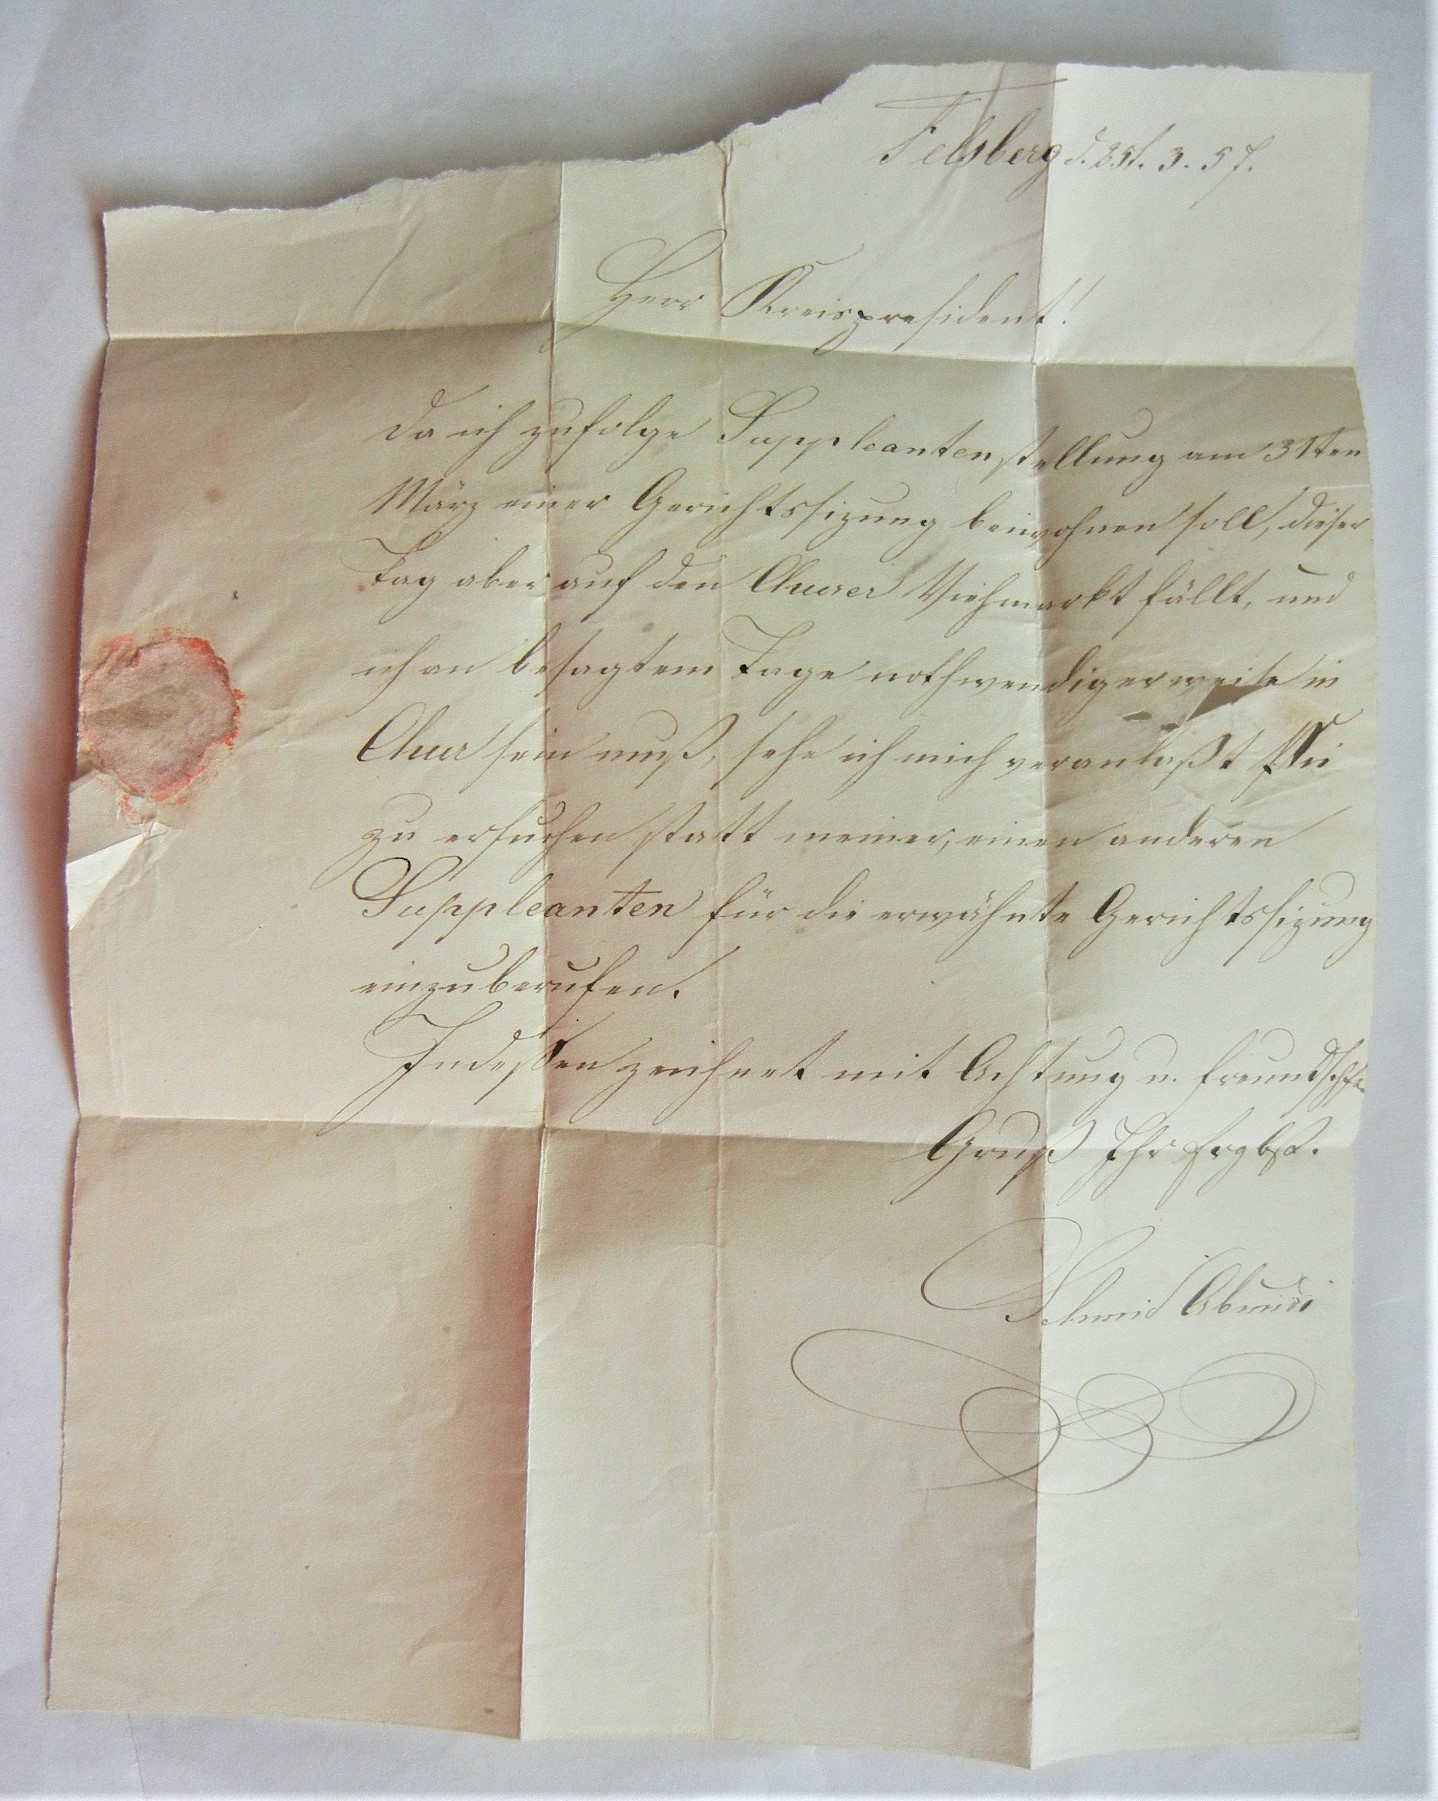 Felsberg d. 25t. 3. 57.
Herr Kreispresident!
Da ich zufolge Suppleantenstellung am 31ten
März einer Gerichtssizung beiwohnen soll, dieser
Tag aber auf den Churer Viehmarkt fällt, und
ich an besagtem Tage nothwendigerweise in
Chur sein muß, sehe ich mich veranlaßt Sie
zu ersuchen statt meiner, einen anderen
Suppleanten für die erwähnte Gerichtssizung
einzuberufen.
Indessen zeichnet mit Achtung u. freundschftl.
Gruß Ihr Ergbst.
Schmid Abundi